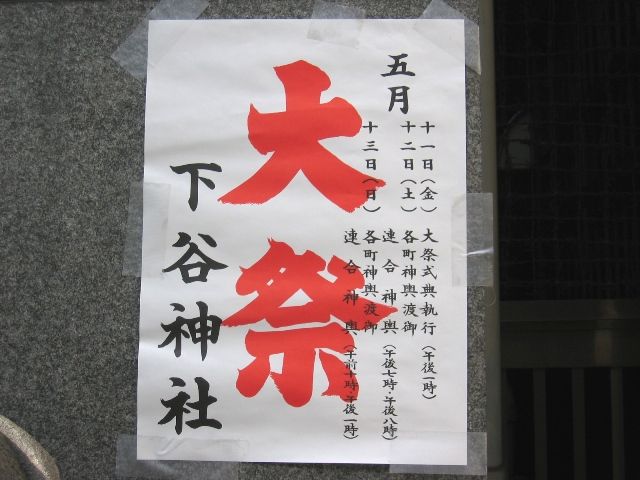 五月
十一日(金) 大祭式典執行(午後一時)
十二日(土) 各町神輿渡御
連合神輿(午後七時・午後八時)
十三日(日) 各町神輿渡御
連合神輿(午前十時・午後一時)
大祭
下谷神社